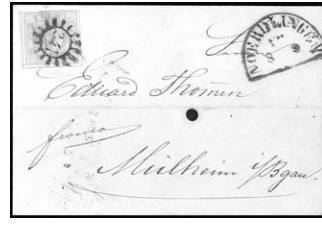 NOERDLINGEN
Eduard Thomen
franco
Mülheim i/Bgau.